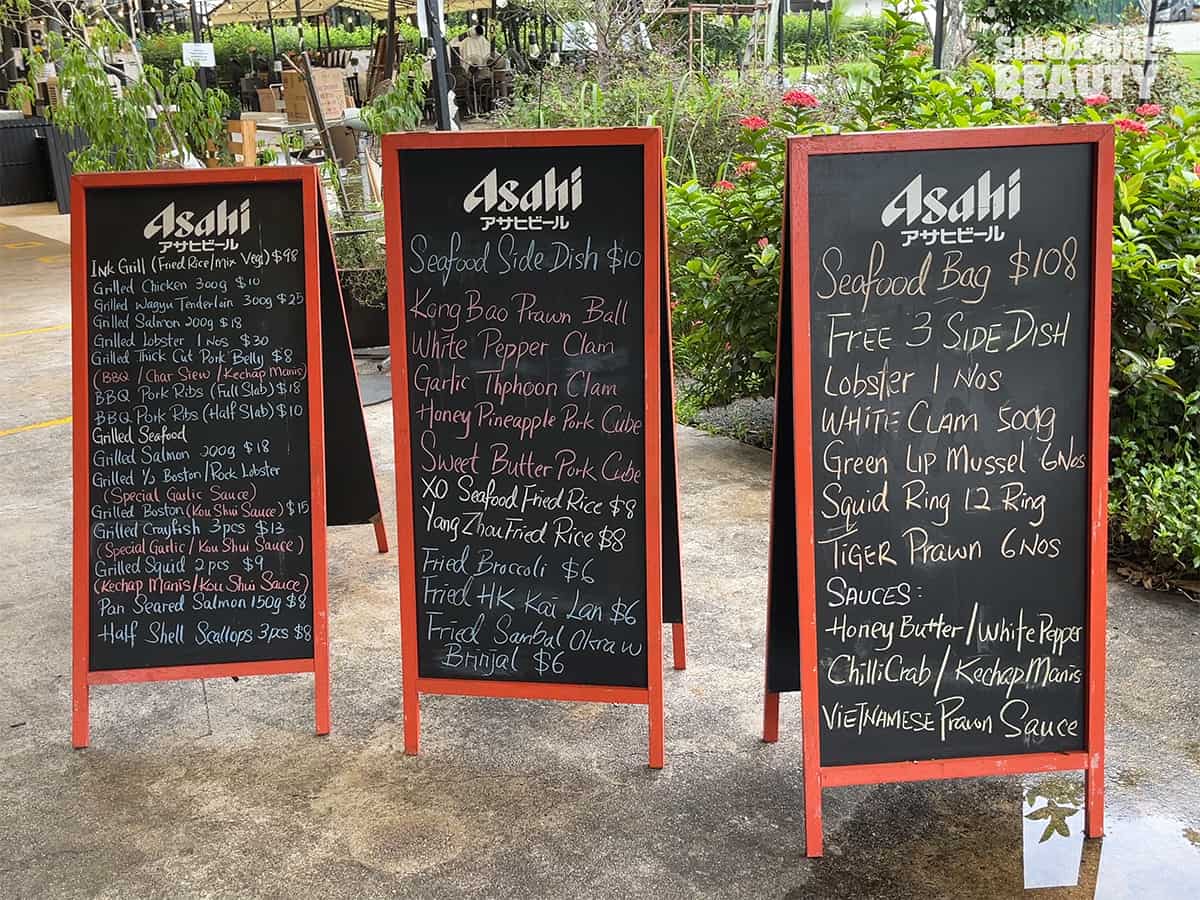 SINGAPORE
BEAUTY
Asahi
アサヒビール
Ink Grill (Fried Rice/mix Veg) $98
Grilled Chicken 300g $10
Grilled Wagyu Tenderloin 300g $25
Grilled Salmon 200g $18
Grilled Lobster 1 Nos $30
Grilled Thick Cut Pork Belly $8
(BBQ / Char Siew / Kechap Manis)
BBQ Pork Ribs (Full Slab) $18
BBQ Pork Ribs (Half Slab) $10
Grilled Seafood
Grilled Salmon 200g $18
Grilled ½ Boston/Rock Lobster
(Special Garlic Sauce)
Grilled Boston (Kou Shui Sauce) $15
Grilled Crayfish 3pcs $13
(Special Garlic / Kou Shui Sauce)
Grilled Squid 2pcs $9
(Kechap Manis/Kou Shui Sauce)
Pan Seared Salmon 150g $8
Half Shell Scallops 3pcs $8
Asahi
アサヒビール
Seafood Side Dish $10
Kong Bao Prawn Ball
White Pepper Clam
Garlic Thphoon Clam
Honey Pineapple Pork Cube
Sweet Butter Pork Cube
XO Seafood Fried Rice $8
Yang Zhou Fried Rice $8
Fried Broccoli $6
Fried HK Kai Lan $6
Fried Sambal Okra w
Brinjal $6
Asahi
アサヒビール
Seafood Bag $108
Free 3 Side Dish
Lobster 1 Nos
White Clam 500g
Green Lip Mussel 6Nos
Squid Ring 12 Ring
Tiger Prawn 6Nos
Sauces:
Honey Butter/White Pepper
Chilli Crab/Kechap Manis
Vietnamese Prawn Sauce